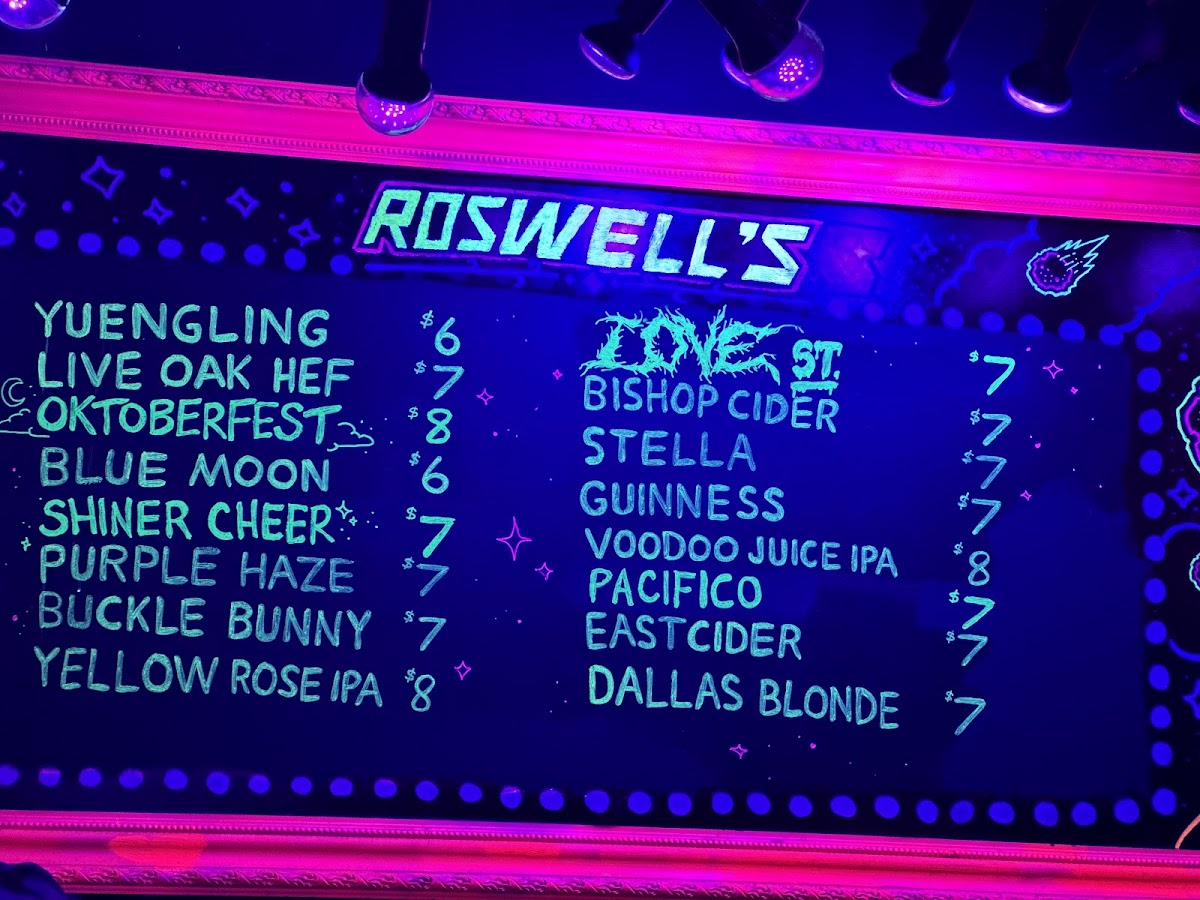 ROSWELL'S
YUENGLING $6
LIVE OAK HEF $7
OKTOBERFEST $8
BLUE MOON $6
SHINER CHEER $7
PURPLE HAZE $7
BUCKLE BUNNY $7
YELLOW ROSE IPA $8
LOVE ST. $7
BISHOP CIDER $7
STELLA $7
GUINNESS $7
VOODOO JUICE IPA $8
PACIFICO $7
EASTCIDER $7
DALLAS BLONDE $7